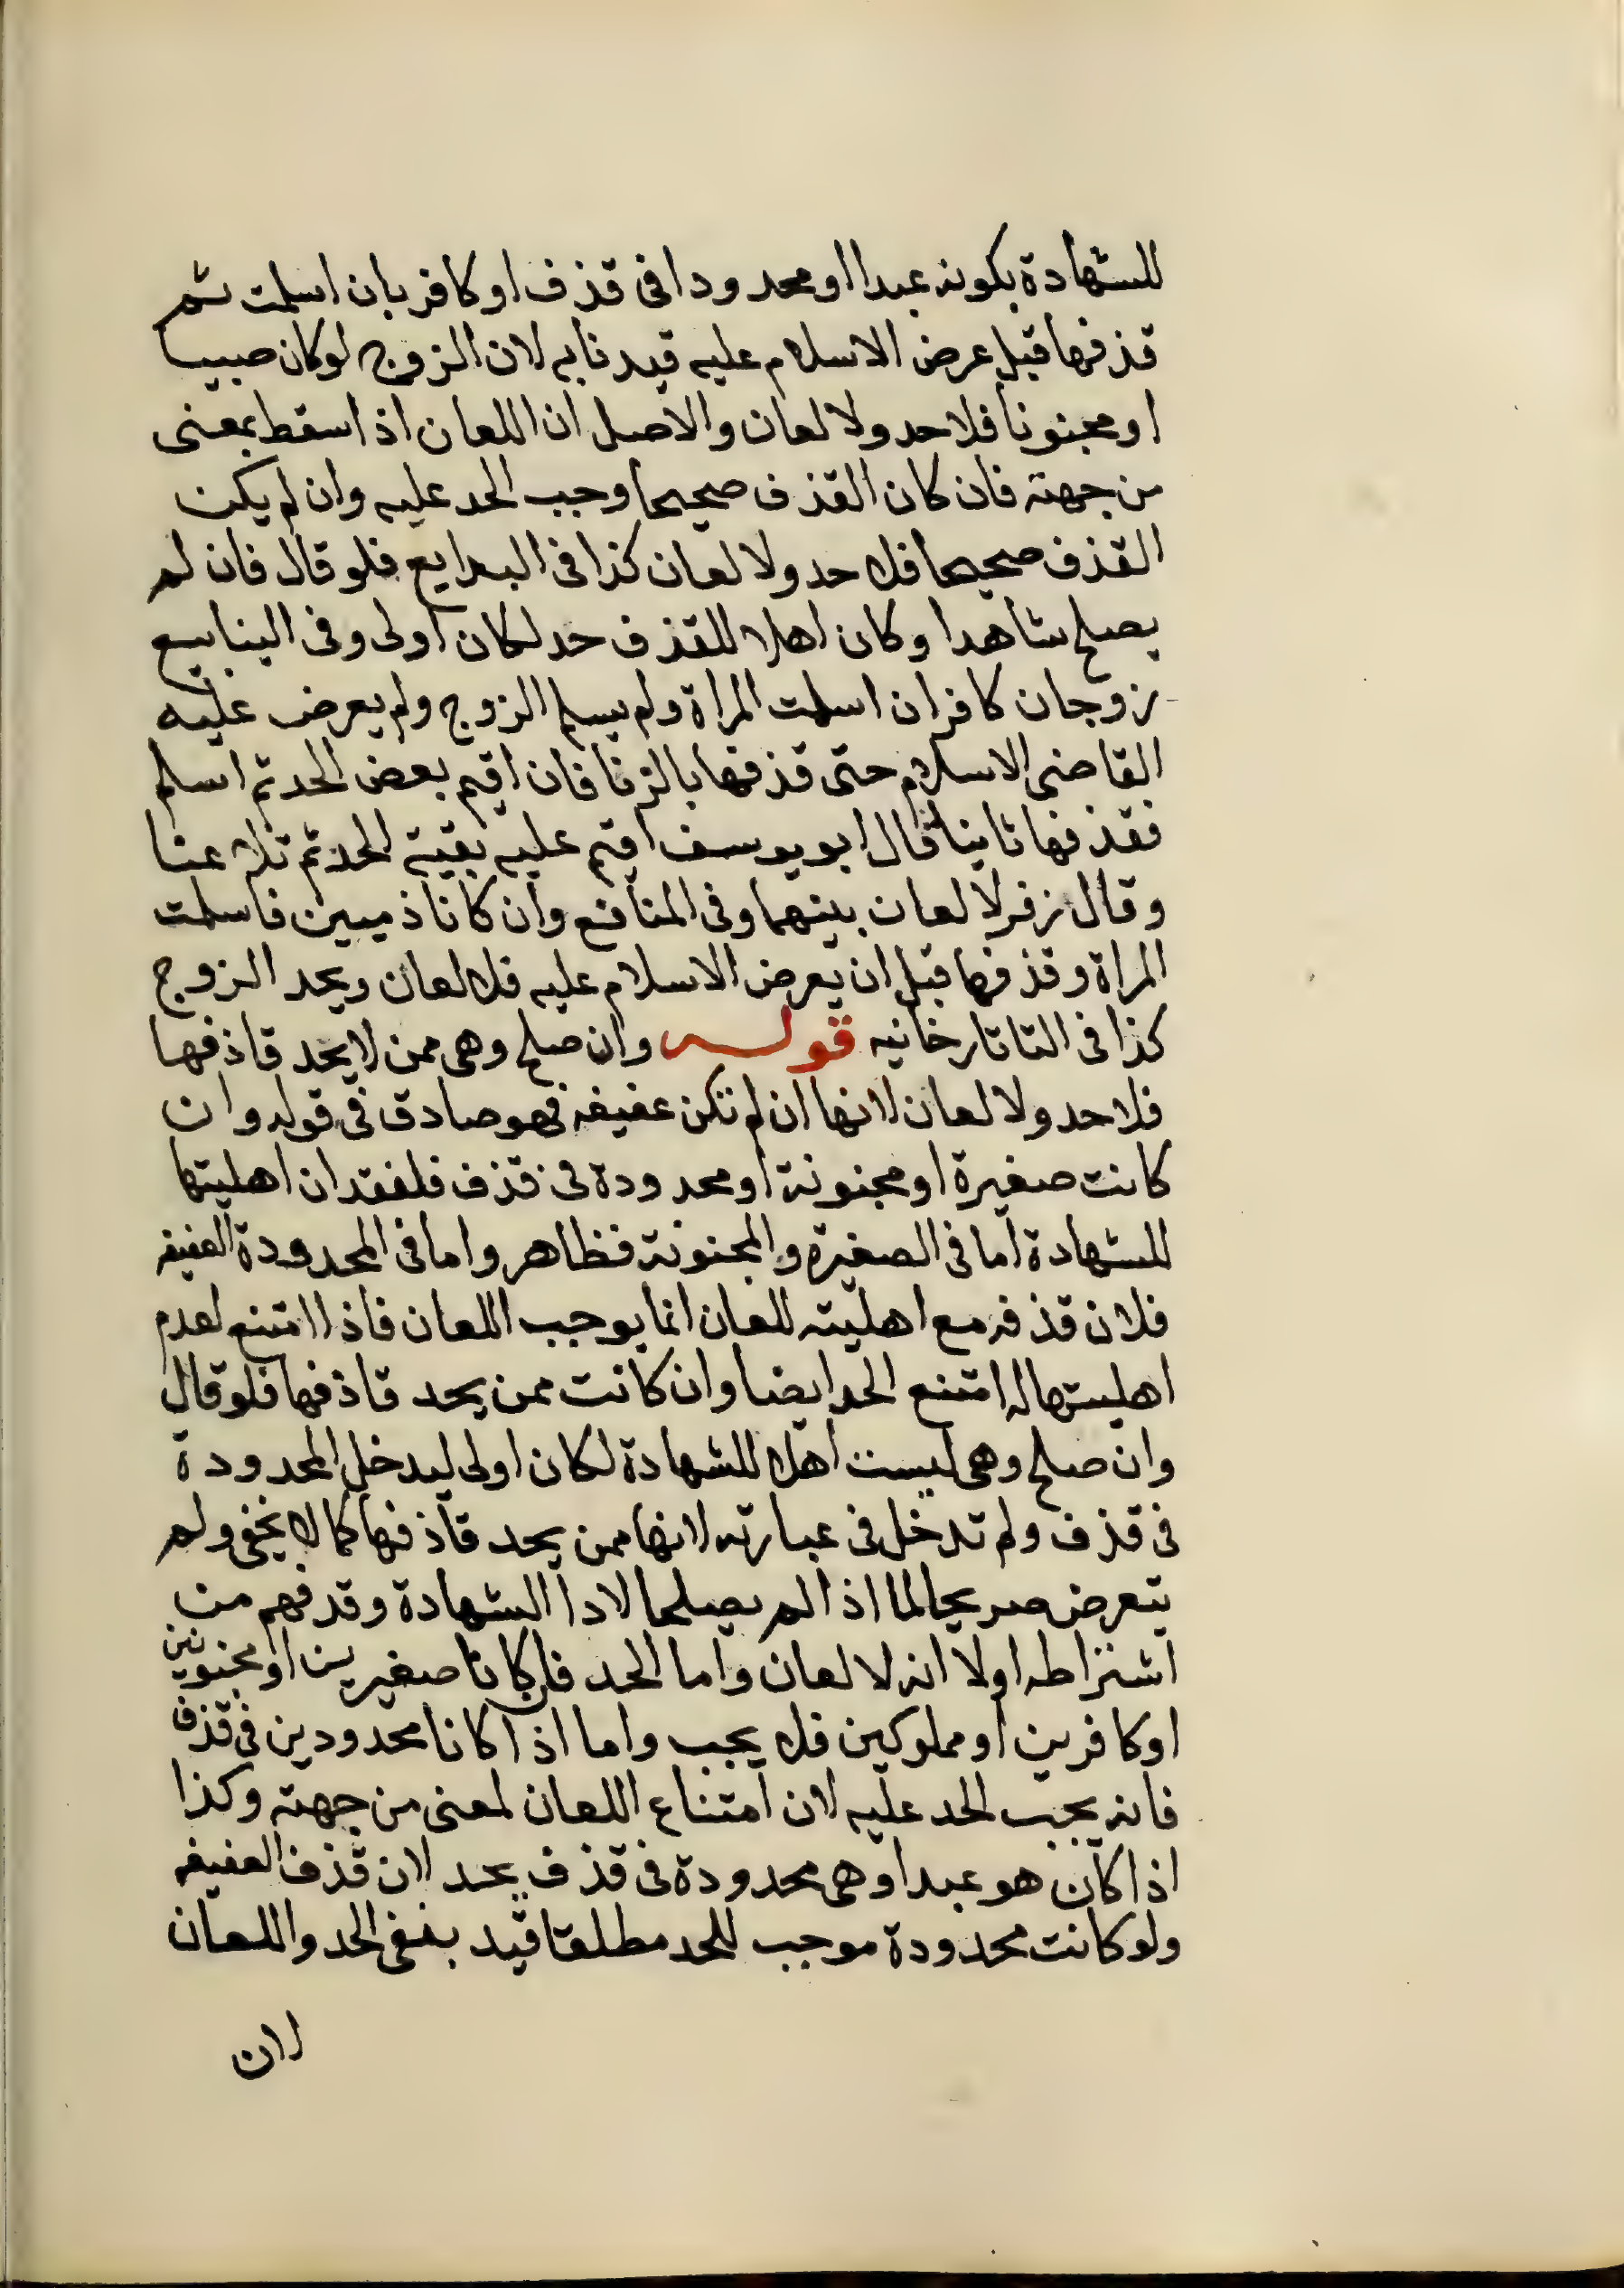 للشهادة بكونه عبدا او محدودا فى قذف او كافر بان اسلمت ثم
قذفها قبل عرض الاسلام عليه قيدنا به لان الزوج لو كان صبيا
او مجنونا فلا حد ولا لعان والاصل ان اللعان اذا سقط بمعنى
من جهته فان كان القذف صحيحا وجب الحد عليه وان لم يكن
القذف صحيحا فلا حد ولا لعان كذا فى البدايع فلو قال فان لم
يصلح شاهدا وكان اهلا للقذف حد لكان اولى وفى الينابيع
زوجان كافران اسلمت المراة ولم يسلم الزوج ولم يعرض عليه
القاضى الاسلام حتى قذفها بالزنا فان اقيم بعض الحد ثم اسلم
فقذفها ثانيا قال ابو يوسف اقيم عليه بقية الحد ثم تلاعنا
وقال زفر لا لعان بينهما وفى المنافع وان كانا ذميين فاسلمت
المراة وقذفها قبل ان يعرض الاسلام عليه فلا لعان ويحد الزوج
كذا فى التاتارخانيه قوله وان صلح وهى ممن لا يحد قاذفها
فلا حد ولا لعان لانها ان لم تكن عفيفه فهو صادق فى قوله وان
كانت صغيرة او مجنونة او محدودة فى قذف فلفقدان اهليتها
للشهادة اما فى الصغيرة والمجنونة فظاهر واما فى المحدودة العفيفه
فلان قذفه مع اهليته للعان انما يوجب اللعان فاذا امتنع لعدم
اهليتها له امتنع الحد ايضا وان كانت ممن يحد قاذفها فلو قال
وان صلح وهى ليست اهلا للشهادة لكان اولى ليدخل المحدودة
فى قذف ولم تدخل فى عبارته لانها ممن يحد قاذفها كما لا يخفى ولم
يتعرض صريحا لما اذا لم يصلحا لادا الشهادة وقد فهم من
اشتراطه اولا انه لا لعان واما الحد فان كانا صغيرين او مجنونين
او كافرين او مملوكين فلا يجب واما اذا كانا محدودين فى قذف
فانه يجب الحد عليه لان امتناع اللعان لمعنى من جهته وكذا
اذا كان هو عبدا وهى محدودة فى قذف يحد لان قذف العفيفه
ولو كانت محدودة موجب للحد مطلقا قيد بنفى الحد واللعان
لان